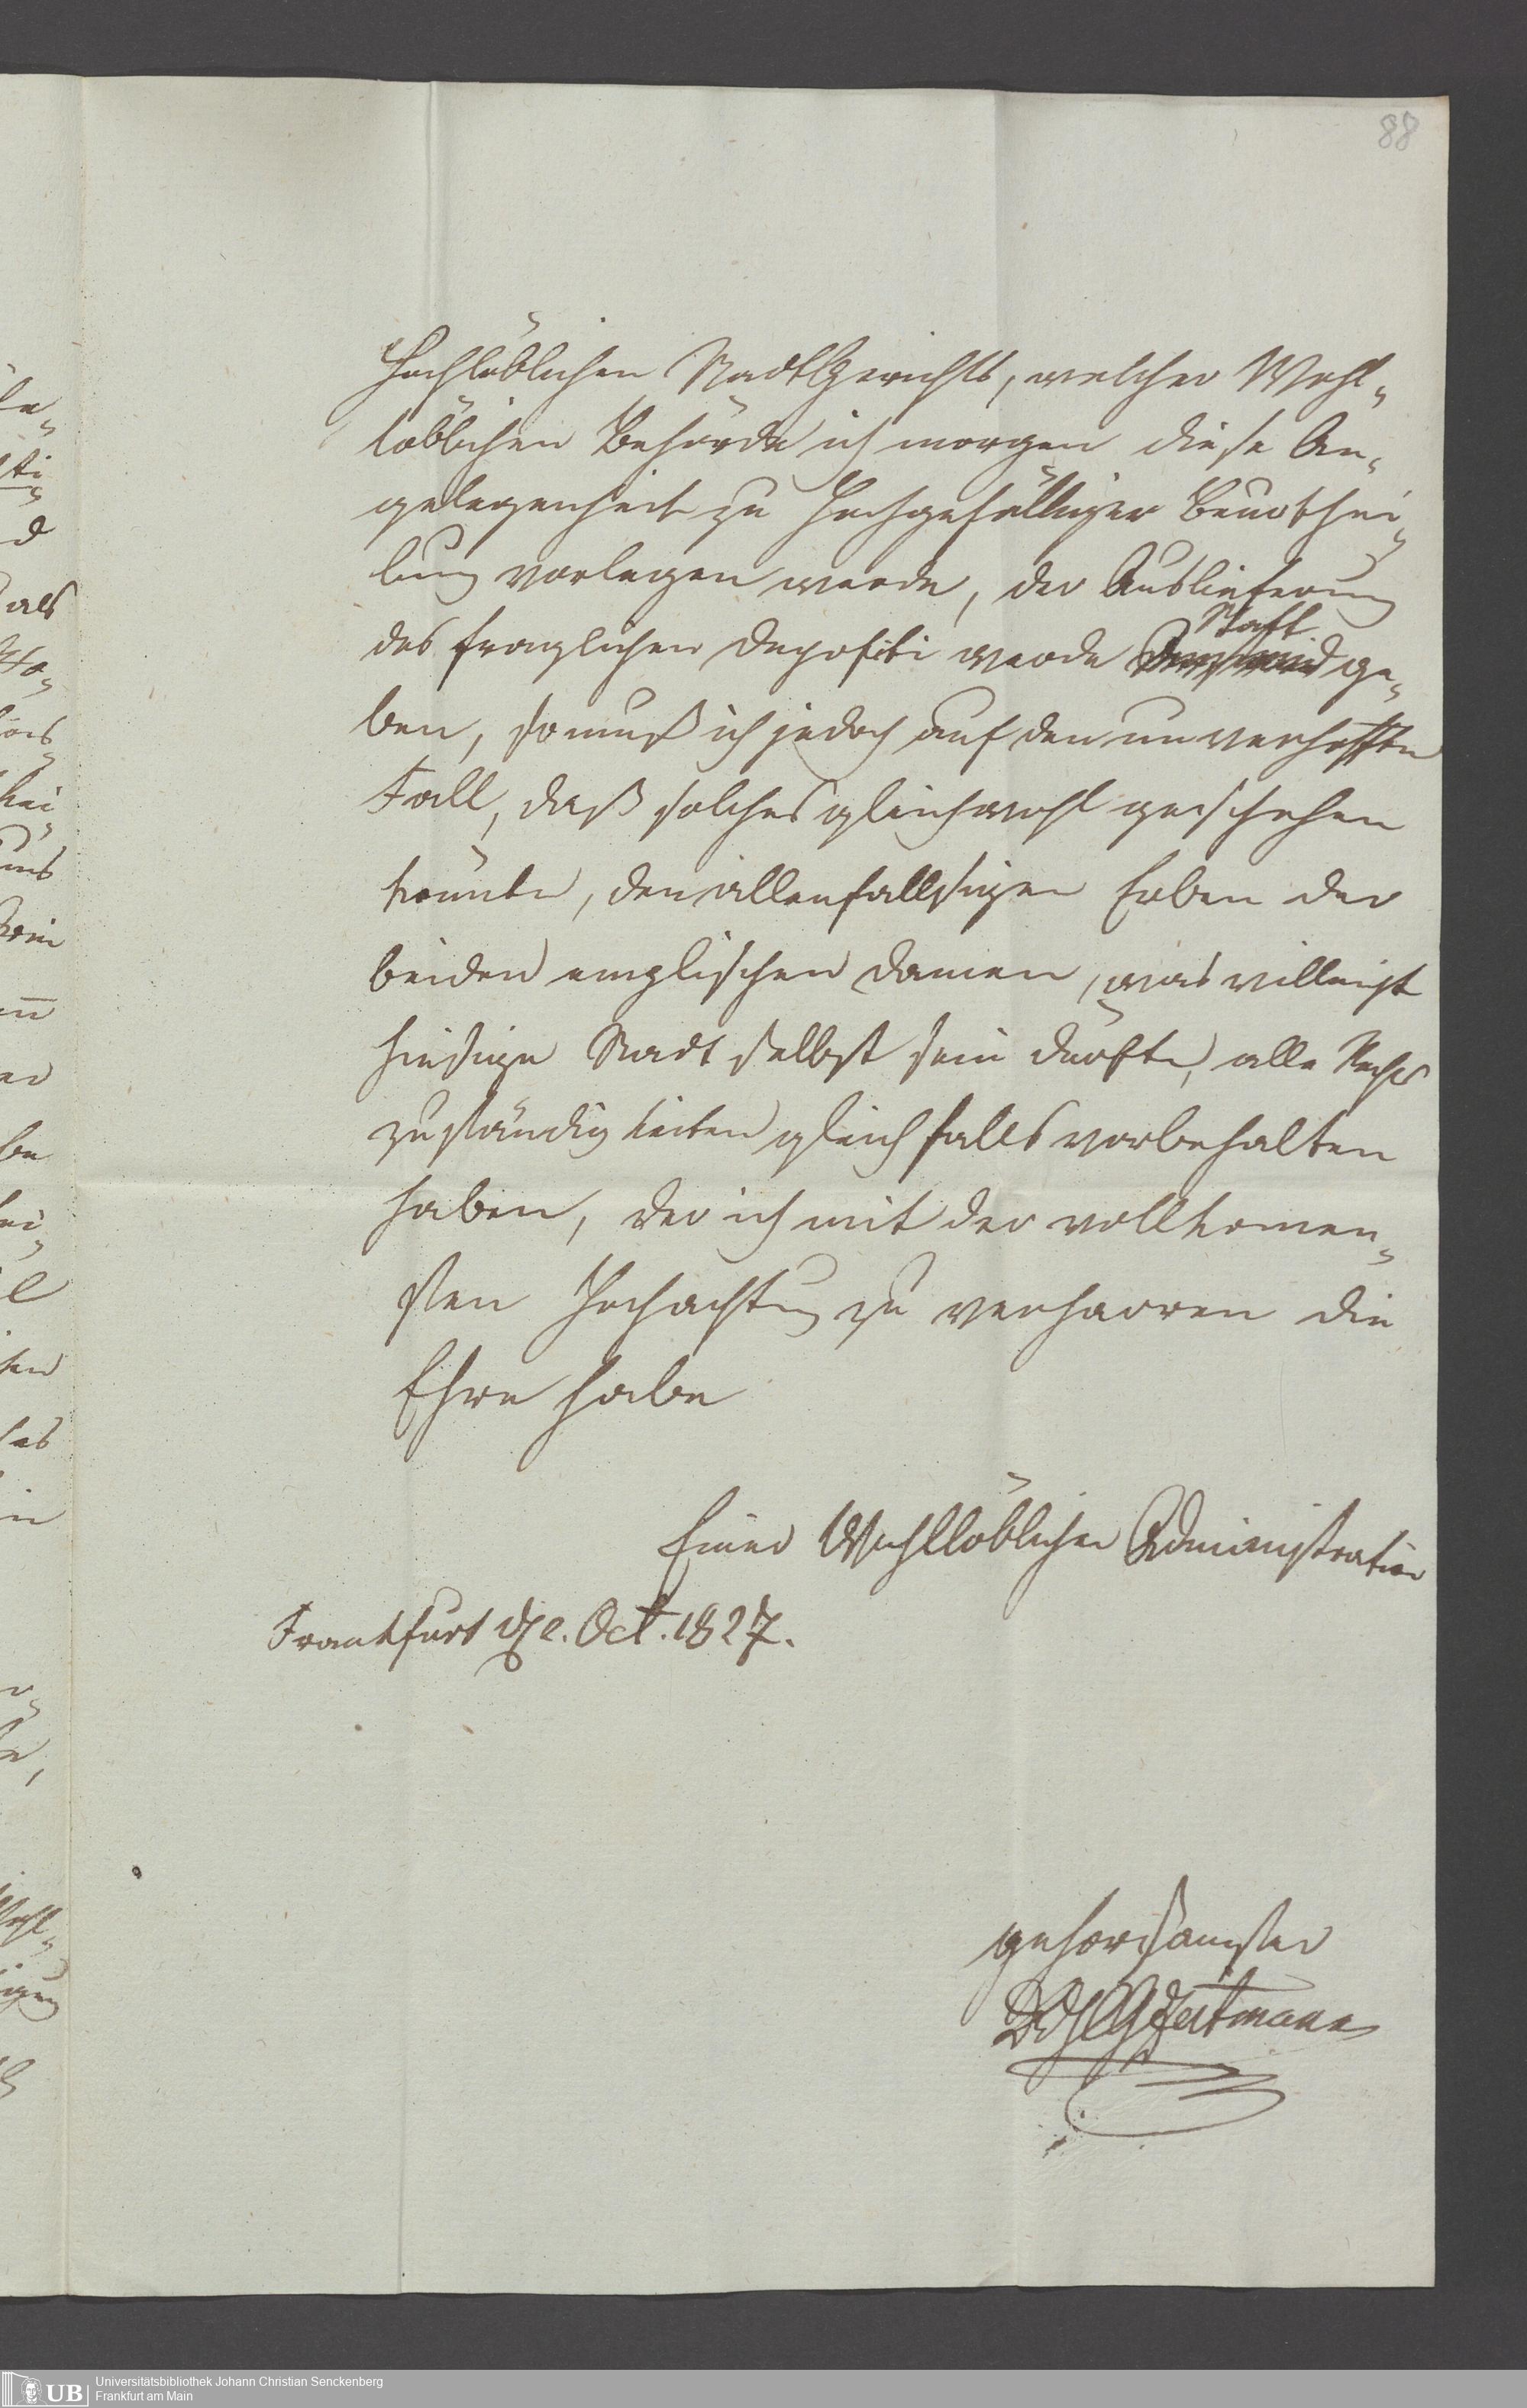 88
Hochlöblichen StadtGerichts, welcher Wohl-
löblichen Behörde ich morgen diese An-
gelegenheit zu Hochgefälliger Beurthei-
lung vorlegen werde, der Auslieferung
Statt
des fraglichen Depositi werde ge-
ben, so muß ich jedoch auf den unverhofften
Fall, daß solches gleichwohl geschehen
könnte, den allenfallsigen Erben der
beiden englischen Damen, was villeicht
hiesige Stadt selbst sein dürfte, alle Rechts
zuständigkeiten gleichfalls vorbehalten
haben, der ich mit der vollkomen-
sten Hochachtung zu verharren die
Ehre habe
Einer Wohllöblichen Administration
Frankfurt d. 2. Oct. 1827.
gehorsamster
UB
Universitätsbibliothek Johann Christian Senckenberg
Frankfurt am Main